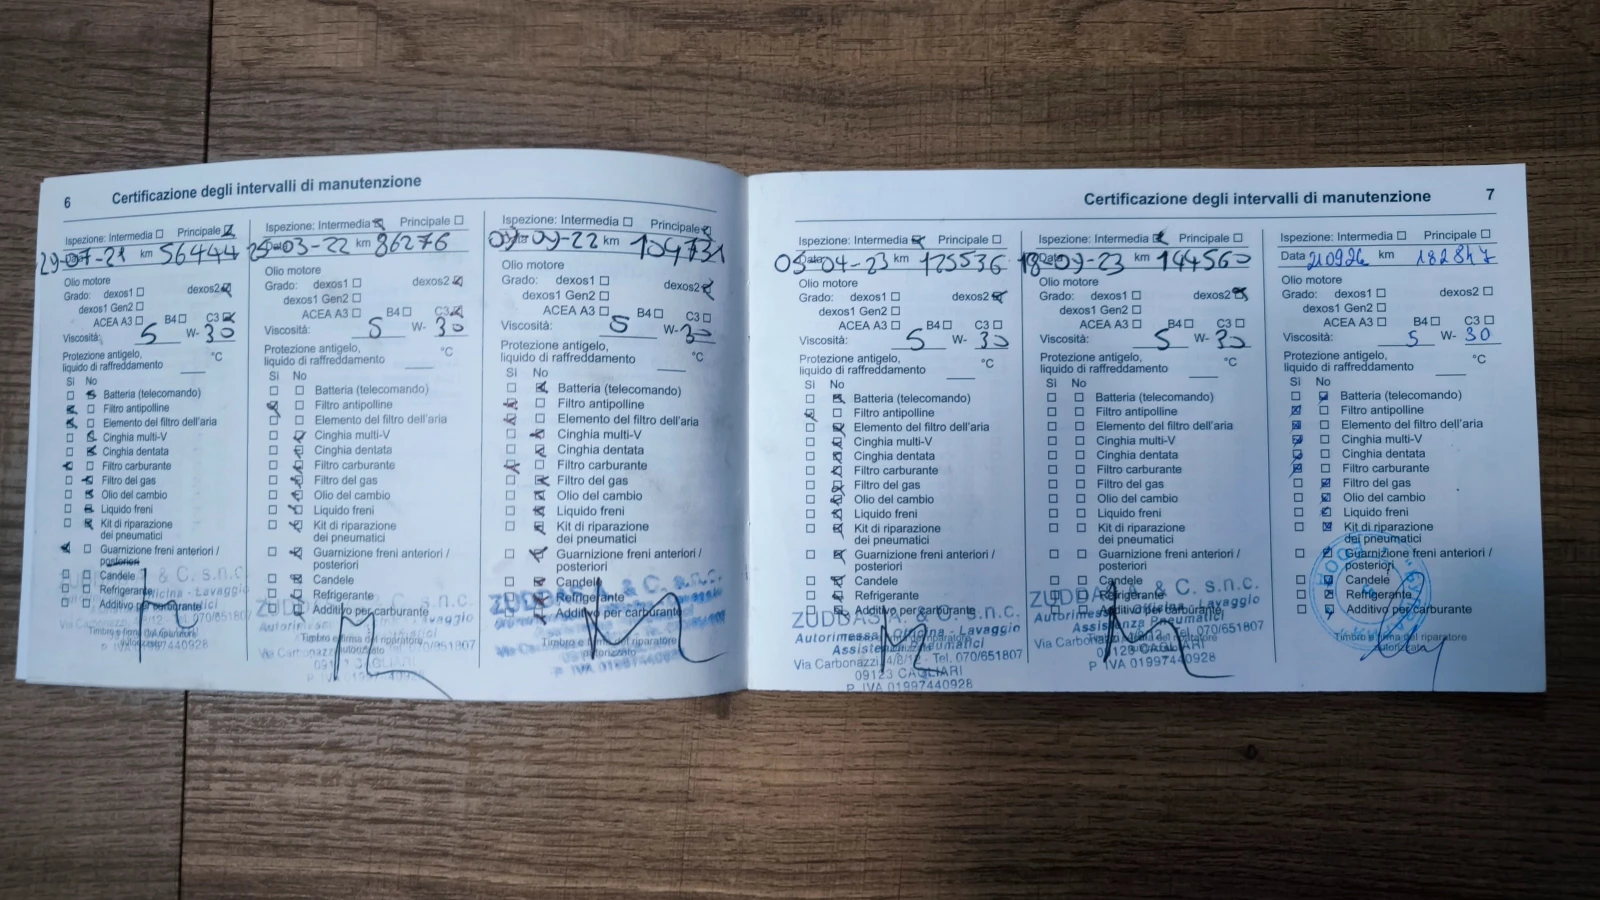 6 Certificazione degli intervalli di manutenzione
Ispezione: Intermedia Principale
29-07-21 km 56444
Olio motore
Grado: dexos1 dexos2
dexos1 Gen2
ACEA A3 B4 C3
Viscosità: 5 W- 30
Protezione antigelo,
liquido di raffreddamento °C
Si No
Batteria (telecomando)
Filtro antipolline
Elemento del filtro dell'aria
Cinghia multi-V
Cinghia dentata
Filtro carburante
Filtro del gas
Olio del cambio
Liquido freni
Kit di riparazione
dei pneumatici
Guarnizione freni anteriori /
posteriori
Candele
Refrigerante
Additivo per carburante
Timbro e firma del riparatore
autorizzato
Ispezione: Intermedia Principale
25-03-22 km 86276
Olio motore
Grado: dexos1 dexos2
dexos1 Gen2
ACEA A3 B4 C3
Viscosità: 5 W- 30
Protezione antigelo,
liquido di raffreddamento °C
Si No
Batteria (telecomando)
Filtro antipolline
Elemento del filtro dell'aria
Cinghia multi-V
Cinghia dentata
Filtro carburante
Filtro del gas
Olio del cambio
Liquido freni
Kit di riparazione
dei pneumatici
Guarnizione freni anteriori /
posteriori
Candele
Refrigerante
Additivo per carburante
Timbro e firma del riparatore
autorizzato
Ispezione: Intermedia Principale
09-22 km 104731
Olio motore
Grado: dexos1 dexos2
dexos1 Gen2
ACEA A3 B4 C3
Viscosità: 5 W- 30
Protezione antigelo,
liquido di raffreddamento °C
Si No
Batteria (telecomando)
Filtro antipolline
Elemento del filtro dell'aria
Cinghia multi-V
Cinghia dentata
Filtro carburante
Filtro del gas
Olio del cambio
Liquido freni
Kit di riparazione
dei pneumatici
Guarnizione freni anteriori /
posteriori
Candele
Refrigerante
Additivo per carburante
Timbro e firma del riparatore
autorizzato
Certificazione degli intervalli di manutenzione 7
Ispezione: Intermedia Principale
Data 05-04-23 km 125536
Olio motore
Grado: dexos1 dexos2
dexos1 Gen2
ACEA A3 B4 C3
Viscosità: 5 W- 30
Protezione antigelo,
liquido di raffreddamento °C
Si No
Batteria (telecomando)
Filtro antipolline
Elemento del filtro dell'aria
Cinghia multi-V
Cinghia dentata
Filtro carburante
Filtro del gas
Olio del cambio
Liquido freni
Kit di riparazione
dei pneumatici
Guarnizione freni anteriori /
posteriori
Candele
Refrigerante
Additivo per carburante
ZUDDAS A. & C. s.n.c.
Autorimessa Officina - Lavaggio
Assistenza Pneumatici
Via Carbonazzi, 4/8/12 - Tel. 070/651807
09123 CAGLIARI
P. IVA 01997440928
Ispezione: Intermedia Principale
Data 18-09-23 km 144560
Olio motore
Grado: dexos1 dexos2
dexos1 Gen2
ACEA A3 B4 C3
Viscosità: 5 W- 30
Protezione antigelo,
liquido di raffreddamento °C
Si No
Batteria (telecomando)
Filtro antipolline
Elemento del filtro dell'aria
Cinghia multi-V
Cinghia dentata
Filtro carburante
Filtro del gas
Olio del cambio
Liquido freni
Kit di riparazione
dei pneumatici
Guarnizione freni anteriori /
posteriori
Candele
Refrigerante
Additivo per carburante
ZUDDAS A. & C. s.n.c.
Autorimessa Officina - Lavaggio
Assistenza Pneumatici
Via Carbonazzi, 4/8/12 - Tel. 070/651807
09123 CAGLIARI
P. IVA 01997440928
Ispezione: Intermedia Principale
Data km 182847
Olio motore
Grado: dexos1 dexos2
dexos1 Gen2
ACEA A3 B4 C3
Viscosità: 5 W- 30
Protezione antigelo,
liquido di raffreddamento °C
Si No
Batteria (telecomando)
Filtro antipolline
Elemento del filtro dell'aria
Cinghia multi-V
Cinghia dentata
Filtro carburante
Filtro del gas
Olio del cambio
Liquido freni
Kit di riparazione
dei pneumatici
Guarnizione freni anteriori /
posteriori
Candele
Refrigerante
Additivo per carburante
Timbro e firma del riparatore
autorizzato